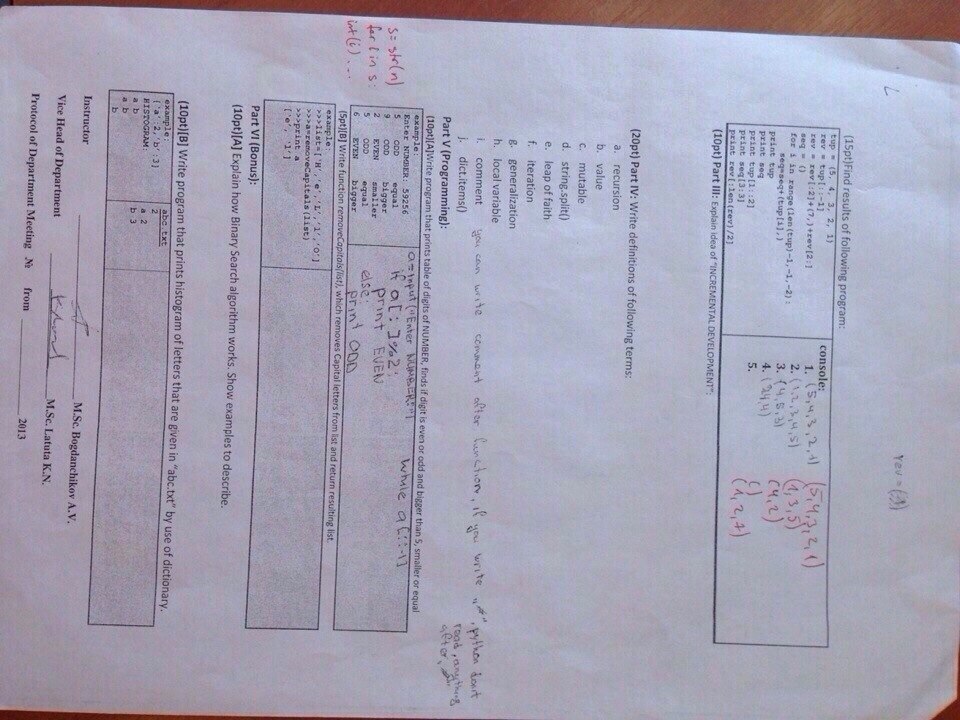 (15pt)Find results of following program:
tup = (5, 4, 3, 2, 1)
rev = tup[::-1]
rev = rev[:2]+(7,)+rev[2:]
seq = ()
for i in range(len(tup)-1,-1,-2):
seq=seq+(tup[i],)
print tup
print seq
print tup[1::2]
print seq[3:]
print rev[:len(rev)/2]
console:
1. (5,4,3,2,1) (5,4,3,2,1)
2. (1,2,3,4,5) (1,3,5)
3. (4,5,3) (4,2)
4. (2,4,4) ()
5. (1,2,7)
rev = (1)
(10pt) Part III: Explain idea of "INCREMENTAL DEVELOPMENT":
(20pt) Part IV: Write definitions of following terms:
a. recursion
b. value
c. mutable
d. string.split()
e. leap of faith
f. iteration
g. generalization
h. local variable
i. comment you can write comment after function, if you write "#", python don't read, anything after
j. dict.items()
Part V (Programming):
(10pt)[A]Write program that prints table of digits of NUMBER, finds if digit is even or odd and bigger than 5, smaller or equal
example:
Enter NUMBER: 59256
5 ODD equal
9 ODD bigger
2 EVEN smaller
5 ODD equal
6 EVEN bigger
a=input("Enter NUMBER:")
while a[::-1]
if a[:]%2:
print EVEN
else:
print ODD
s = str(n)
for i in s:
int(i) ...
(5pt)[B] Write function removeCapitals(list), which removes Capital letters from list and return resulting list.
example:
>>>list=['H','e','L','l','O']
>>>a=removeCapitals(list)
>>>print a
['e','l']
Part VI (Bonus):
(10pt)[A] Explain how Binary Search algorithm works. Show examples to describe.
(10pt)[B] Write program that prints histogram of letters that are given in "abc.txt" by use of dictionary.
example:
['a',2,'b',3]
HISTOGRAM:
a b
a b
b
abc.txt
2
a
a
b 3
Instructor M.Sc. Bogdanchikov A.V.
Vice Head of Department M.Sc. Latuta K.N.
Protocol of Department Meeting № from 2013